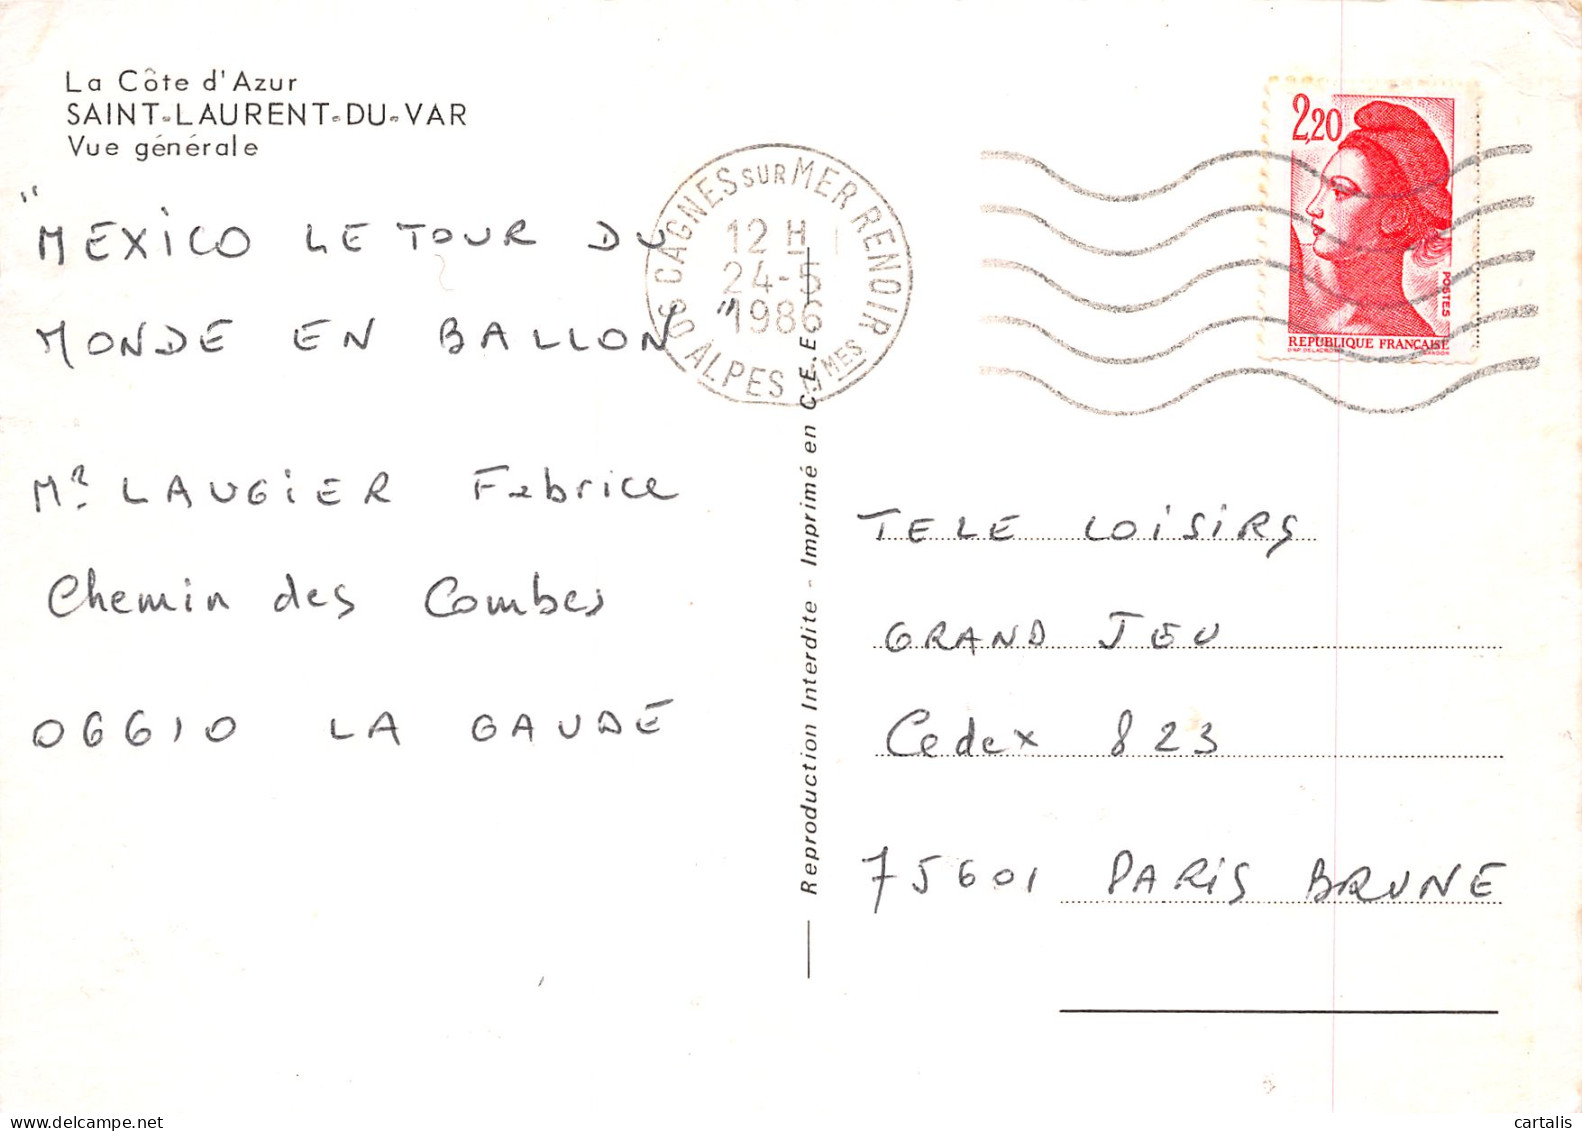 La Côte d'Azur
SAINT-LAURENT-DU-VAR
Vue générale
"MEXICO LE TOUR DU
MONDE EN BALLON"
Mr LAUGIER Fabrice
Chemin des Combes
06610 LA GAUDE
06 CAGNES SUR MER RENOIR
12 H
24-5
1986
ALPES MMES
Reproduction Interdite - Imprimé en C.E.E.
2,20
POSTES
REPUBLIQUE FRANÇAISE
TELE LOISIRS
GRAND JEU
Cedex 823
75601 PARIS BRUNE
cartalis